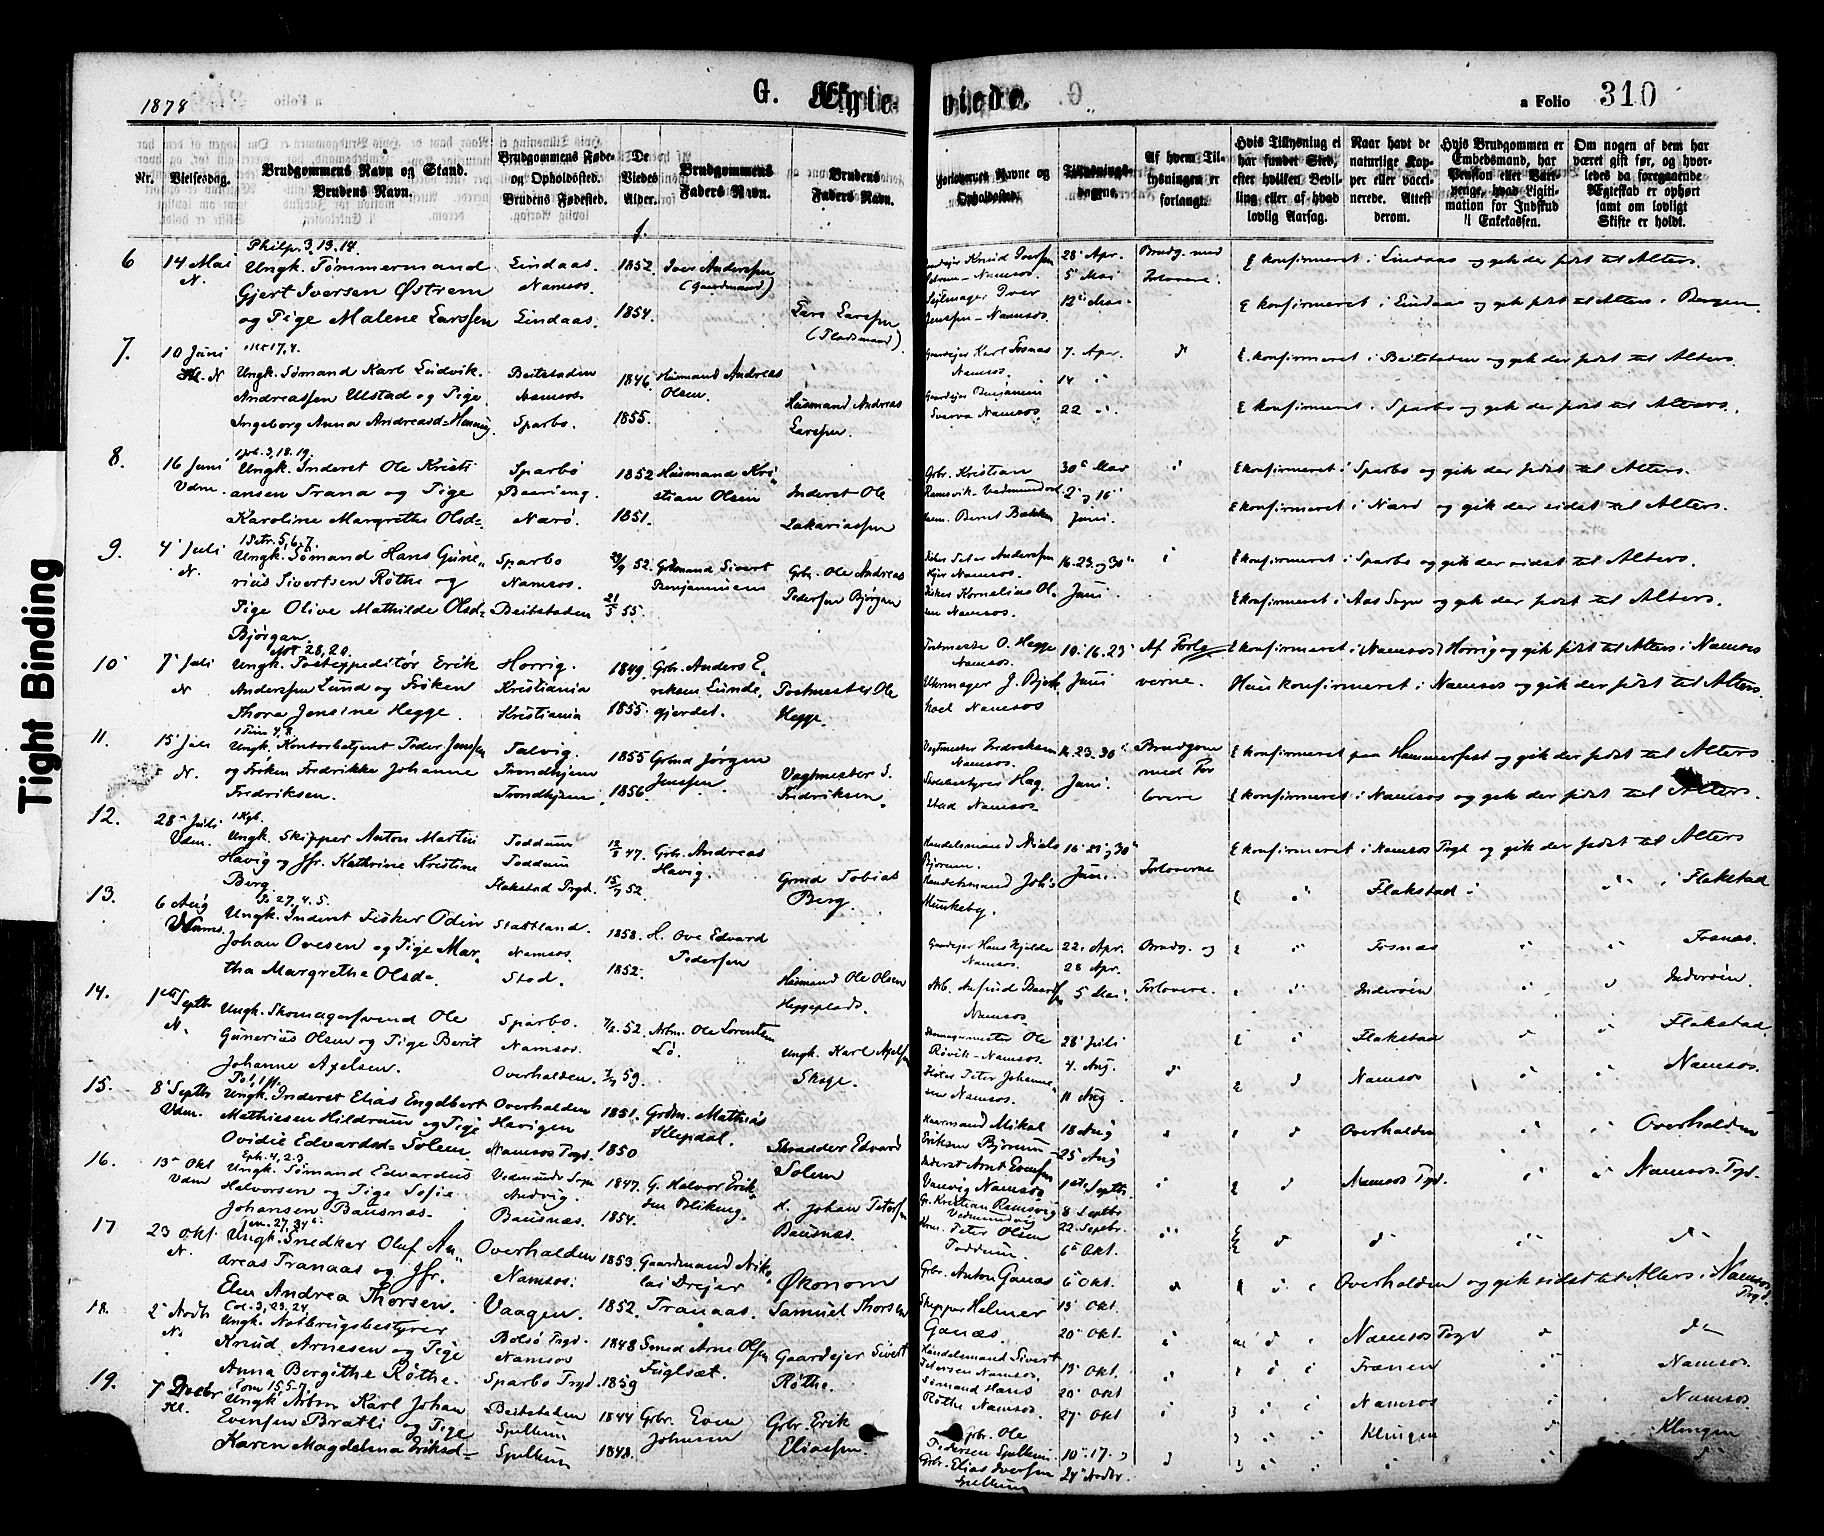 1878
G. Ægte-
viede.
a Folio 310
Nr.
Vielsesdag.
Brudgommens Navn og Stand.
Brudens Navn.
Brudgommens Føde-
og Opholdssted.
Brudens Fødested.
De
Viedes
Alder.
Brudgommens
Faders Navn.
Brudens
Faders Navn.
Forlovernes Navne og
Opholdssted.
Tillysnings-
dagene.
Af hvem Til-
lysningen er
forlangt.
Hvis Tillysning ei
har fundet Sted,
efter hvilken Bevil-
ling eller af hvad
lovlig Aarsag.
Naar havt de
naturlige Kop-
per eller vacci-
nerede. Attest
derom.
Hvis Brudgommen er
Embedsmand, har
Pension eller Var-
penge, hvad Legiti-
mation for Indskud
i Enkekassen.
Om nogen af dem har
været gift før, og hvor-
ledes da foregaaende
Ægteskab er ophørt
samt om lovligt
Skifte er holdt.
6
14 Mai
N.
Philip. 3, 13, 14
Ungk. Tømmermand
Gjert Iversen Østrem
og Pige Malene Larssen
Lindaas.
Namsos.
Lindaas.
1852.
1854.
Iver Anderssen
(Gaardmand)
Lars Larssen
(Pladsmand)
Gaardejer Knud Iversen
Namsos.
Sejlmager Iver
Jenssen - Namsos.
28 Apr.
5 Mai
12 Mai
Brudg. med
Forlovere.
E konfirmeret i Lindaas og gik der sidst til Alters.
E konfirmeret i Lindaas og gik sidst til Alters i Bergen.
7.
10 Juni
N
Ungk. Sømand Karl Ludvik
Andreassen Ulstad og Pige
Ingeborg Anna Andreasd. Henning
Beitstaden
Namsos
Sparbo.
1846.
1855.
Husmand Andreas
Olsen.
Husmand Andreas
Larssen.
Gaardejer Karl Fosnas
Namsos.
Gaardejer Benjamin
Sverva Namsos.
7. Apr.
14 "
22 "
E. konfirmeret i Beitstaden og gik der sidst til Alters.
E konfirmeret i Sparbo og gik der sidst til Alters.
8.
16 Juni
Vdm.
Ungk. Inderst Ole Kristi
ansen Trana og Pige
Karoline Margrethe Olsd.
Sparbo
Nærø.
1852
1851.
Husmand Kri
stian Olsen
Inderst Ole
Zakariassen
Grbr. Kristian
Ramsvik
Bernt Bakken
30 Mai
2 og 16
Juni.
E konfirmeret i Sparbo og gik der sidst til Alters.
E konfirmeret i Nærø og gik der sidst til Alters.
9.
4 Juli
N.
1 Petr. 5, 6, 7.
Ungk. Sømand Hans Gune-
rius Sivertsen Røthe og
Pige Olive Mathilde Olsd.
Bjørgan.
Sparbo
Namsos.
Beitstaden
29/9 52.
21/5 55.
Grdmand Sivert
Benjaminsen
Grbr. Ole Andreas
Pedersen Bjørgan
Peter Anderssen
Namsos.
Kornelius Ol-
sen Namsos.
16. 23. og 30
Juni
E konfirmeret i Sparbo og gik der sidst til Alters.
E konfirmeret i Aas Sogn og gik der sidst til Alters.
10
7 Juli
N
Mt. 28, 20.
Ungk. Postexpeditør Erik
Anderssen Lund og Frøken
Thora Jensine Hegge.
Horrig.
Kristiania
Kristiania
1849.
1855.
Grbr. Anders E-
riksen Lunde,
gjerdet.
Postmester Ole
Hegge.
Postmester O. Hegge
Namsos.
Uhrmager J. Bjerk
Namsos
10. 16. 23
Juni
Af Forlo-
verne.
E konfirmeret i (Namsos) Horrig og gik sidst til Alters i Namsos
Hun konfirmeret i Namsos og gik der sidst til Alters.
11.
15 Juli
N.
1 Tim 4, 8.
Ungk. Kontorbetjent Peder Jenssen
og Frøken Fredrikke Johanne
Fredriksen.
Talvig.
Trondhjem
Trondhjem.
1855
1856.
Grdmd Jørgen
Jenssen.
Vagtmester S.
Fredriksen.
Vagtmester Fredriksen
Namsos.
Hag-
stad Namsos.
16. 23. 30
Juni.
Brudgom
med For
lovere
E konfirmeret paa Hammerfest og gik der sidst til Alters
E konfirmeret i Namsos og gik der sidst til Alters.
12.
28 Juli
Vdm.
Ungk. Skipper Anton Martin
Havig og Jfr. Kathrine Kristine
Berg.
Toddum
Toddum
Flakstad Prgd.
12/8 47.
15/9 52
Grbr. Andreas
Havig.
Grmd Tobias
Berg.
Handelsmand Niels
Bjørum.
Handelsmand Johs
Munkeby.
16 23 og 30
Juni.
Forloverne
E konfirmeret i Namsos Prgd og gik der sidst til Alters
E " Flakstad " " Flakstad
13.
6 Aug
Nams.
Ps 27, 4. 5.
Ungk. Inderst Fisker Odin
Johan Ovesen og Pige Mar-
tha Margretha Olsd.
Statland.
Namsos.
Stod.
1853.
1852.
H. Ove Edvard
Pedersen
Husmand Ole Olsen
Heggeplads.
Gaardejer Hans Kjelde
Namsos.
Arb. Anfind Baardsen
Namsos.
22. Apr.
28 Apr.
5 Mai.
Brudg. og
Forlovere.
E " Fosnas " " Fosnas.
" " Inderøen " " Inderøen.
14.
1ste Septbr
N.
Ungk. Skomagersvend Ole
Gunerius Olsen og Pige Berit
Johanne Axelsen.
Sparbo.
Namsos.
Overhalden.
7/6. 52.
7/9 59.
Arbm. Ole Lorentsen
Lø.
Ungk. Karl Axelsen
Skage.
Skomagermester Ole
Røvik - Namsos.
Peter Johanne-
sen Namsos.
28 Juli
4. Aug.
11 Aug.
E " Flakstad " " Flakstad.
E " Namsos " " Namsos.
15.
8 Septbr
Vdm.
Ungk. Inderst Elias Engelbert
Mathiesen Hildrum og Pige
Ovidie Edvardsd. Solem.
Overhalden
Havigen
Namsos Prgd.
1851.
1850
Grdm. Mathias
Klepdal.
Skrædder Edvard
Solem
Mikal
Eriksen Bjørum
Inderst Arnt Evensen
Vanvig Namsos
18 Aug
25 Aug
1ste Septbr.
" " Overhalden " " Overhalden
E " Namsos Prgd. " " Namsos Prgd.
16.
13 Okt
Vdm
Eph. 4, 2. 3.
Ungk. Sømand Edvardus
Halvorsen og Pige Sofie
Johansen Bausnes.
Vedmunds Sogn
Andvig.
Bausnes.
1847.
1854.
G. Halvor Erik-
sen Bliking.
H. Johan Petersen
Bausnas.
Gr. Kristian Ramsvig
Vedmundvig
Peter Olsen
Toddum.
8 Septbr
22. Septbr.
6 Okt.
17
23 Okt
N.
Jer. 27, 34
Ungk. Snedker Oluf An-
dreas Tranaas og Jfr.
Elen Andrea Thorsen.
Overhalden
Namsos.
Vaagen.
1853.
1852.
Gaardmand Niko-
lai Drejer
Tranaas.
Økonom
Samuel Thorsen
Grbr. Anton Ganas
Skipper Helmer
Ganæs.
6 Okt.
13 Okt
20 Okt.
Overhalden og gik sidst til Alters i Namsos
Prgd.
Namsos Prgd
18.
2 Novbr
N.
Col. 3, 23, 24
Ungk. Notbrugsbestyrer
Knud Arnesen og Pige
Anna Bergithe Røthe.
Bolsø Prgd.
Namsos
Sparbo Prgd.
1848
1859
Smed Arne Olsen
Fuglsæt.
Gaardejer Sivert
Røthe.
Handelsmand Sivert
Petersen Namsos.
Sømand Hans
Røthe Namsos.
13 Okt
20 Okt
27 Okt
Frænen
Namsos
Namsos.
Namsos.
19.
7 Decbr
Kl.
Rom 15, 5-7.
Ungk Arbm Karl Johan
Evensen Bratli og Pige
Karen Magdalena Eriksd.
Beitstaden
Spillum
Spillum
1844
1848.
Grbr. Even
Johnsen
Grbr. Erik
Eliassen.
Grbr. Ole
Pedersen Spillum
Grbr. Elias Iversen
Spillum
10. 17. "
24 Novbr.
Klingen
Klingen
Tight Binding